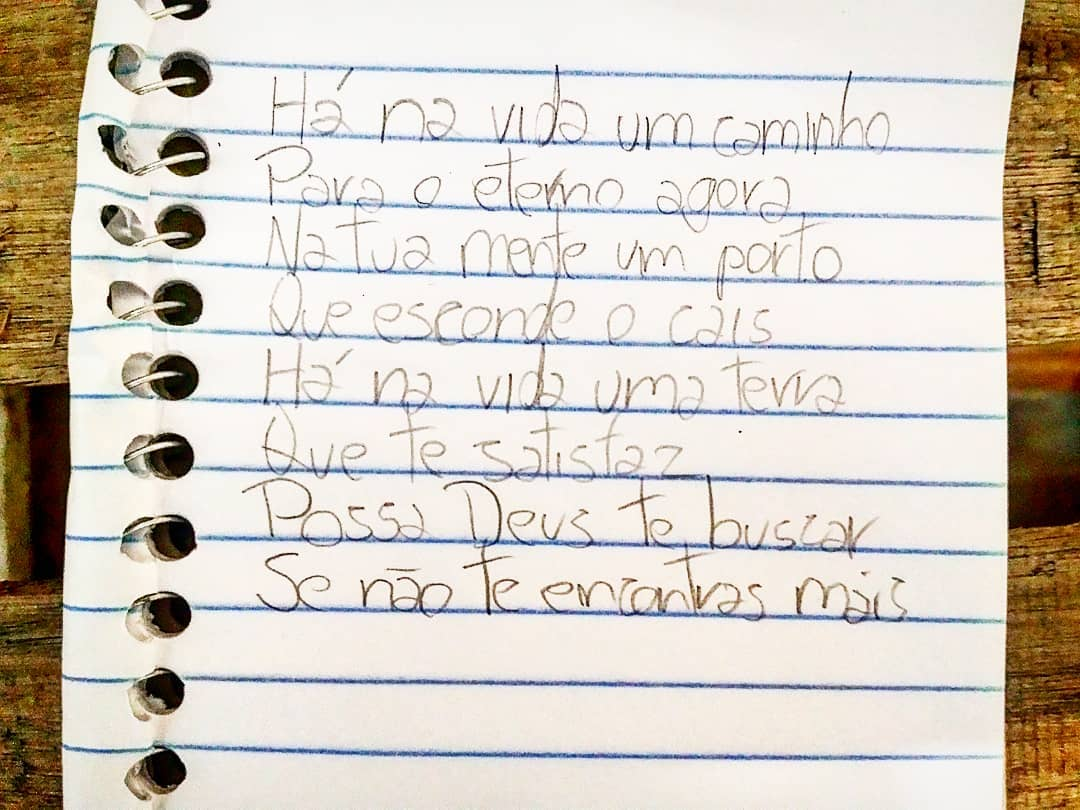 Há na vida um caminho
Para o eterno agora
Na tua mente um porto
Que esconde o cais
Há na vida uma terra
Que te satisfaz
Possa Deus te buscar
Se não te encontras mais